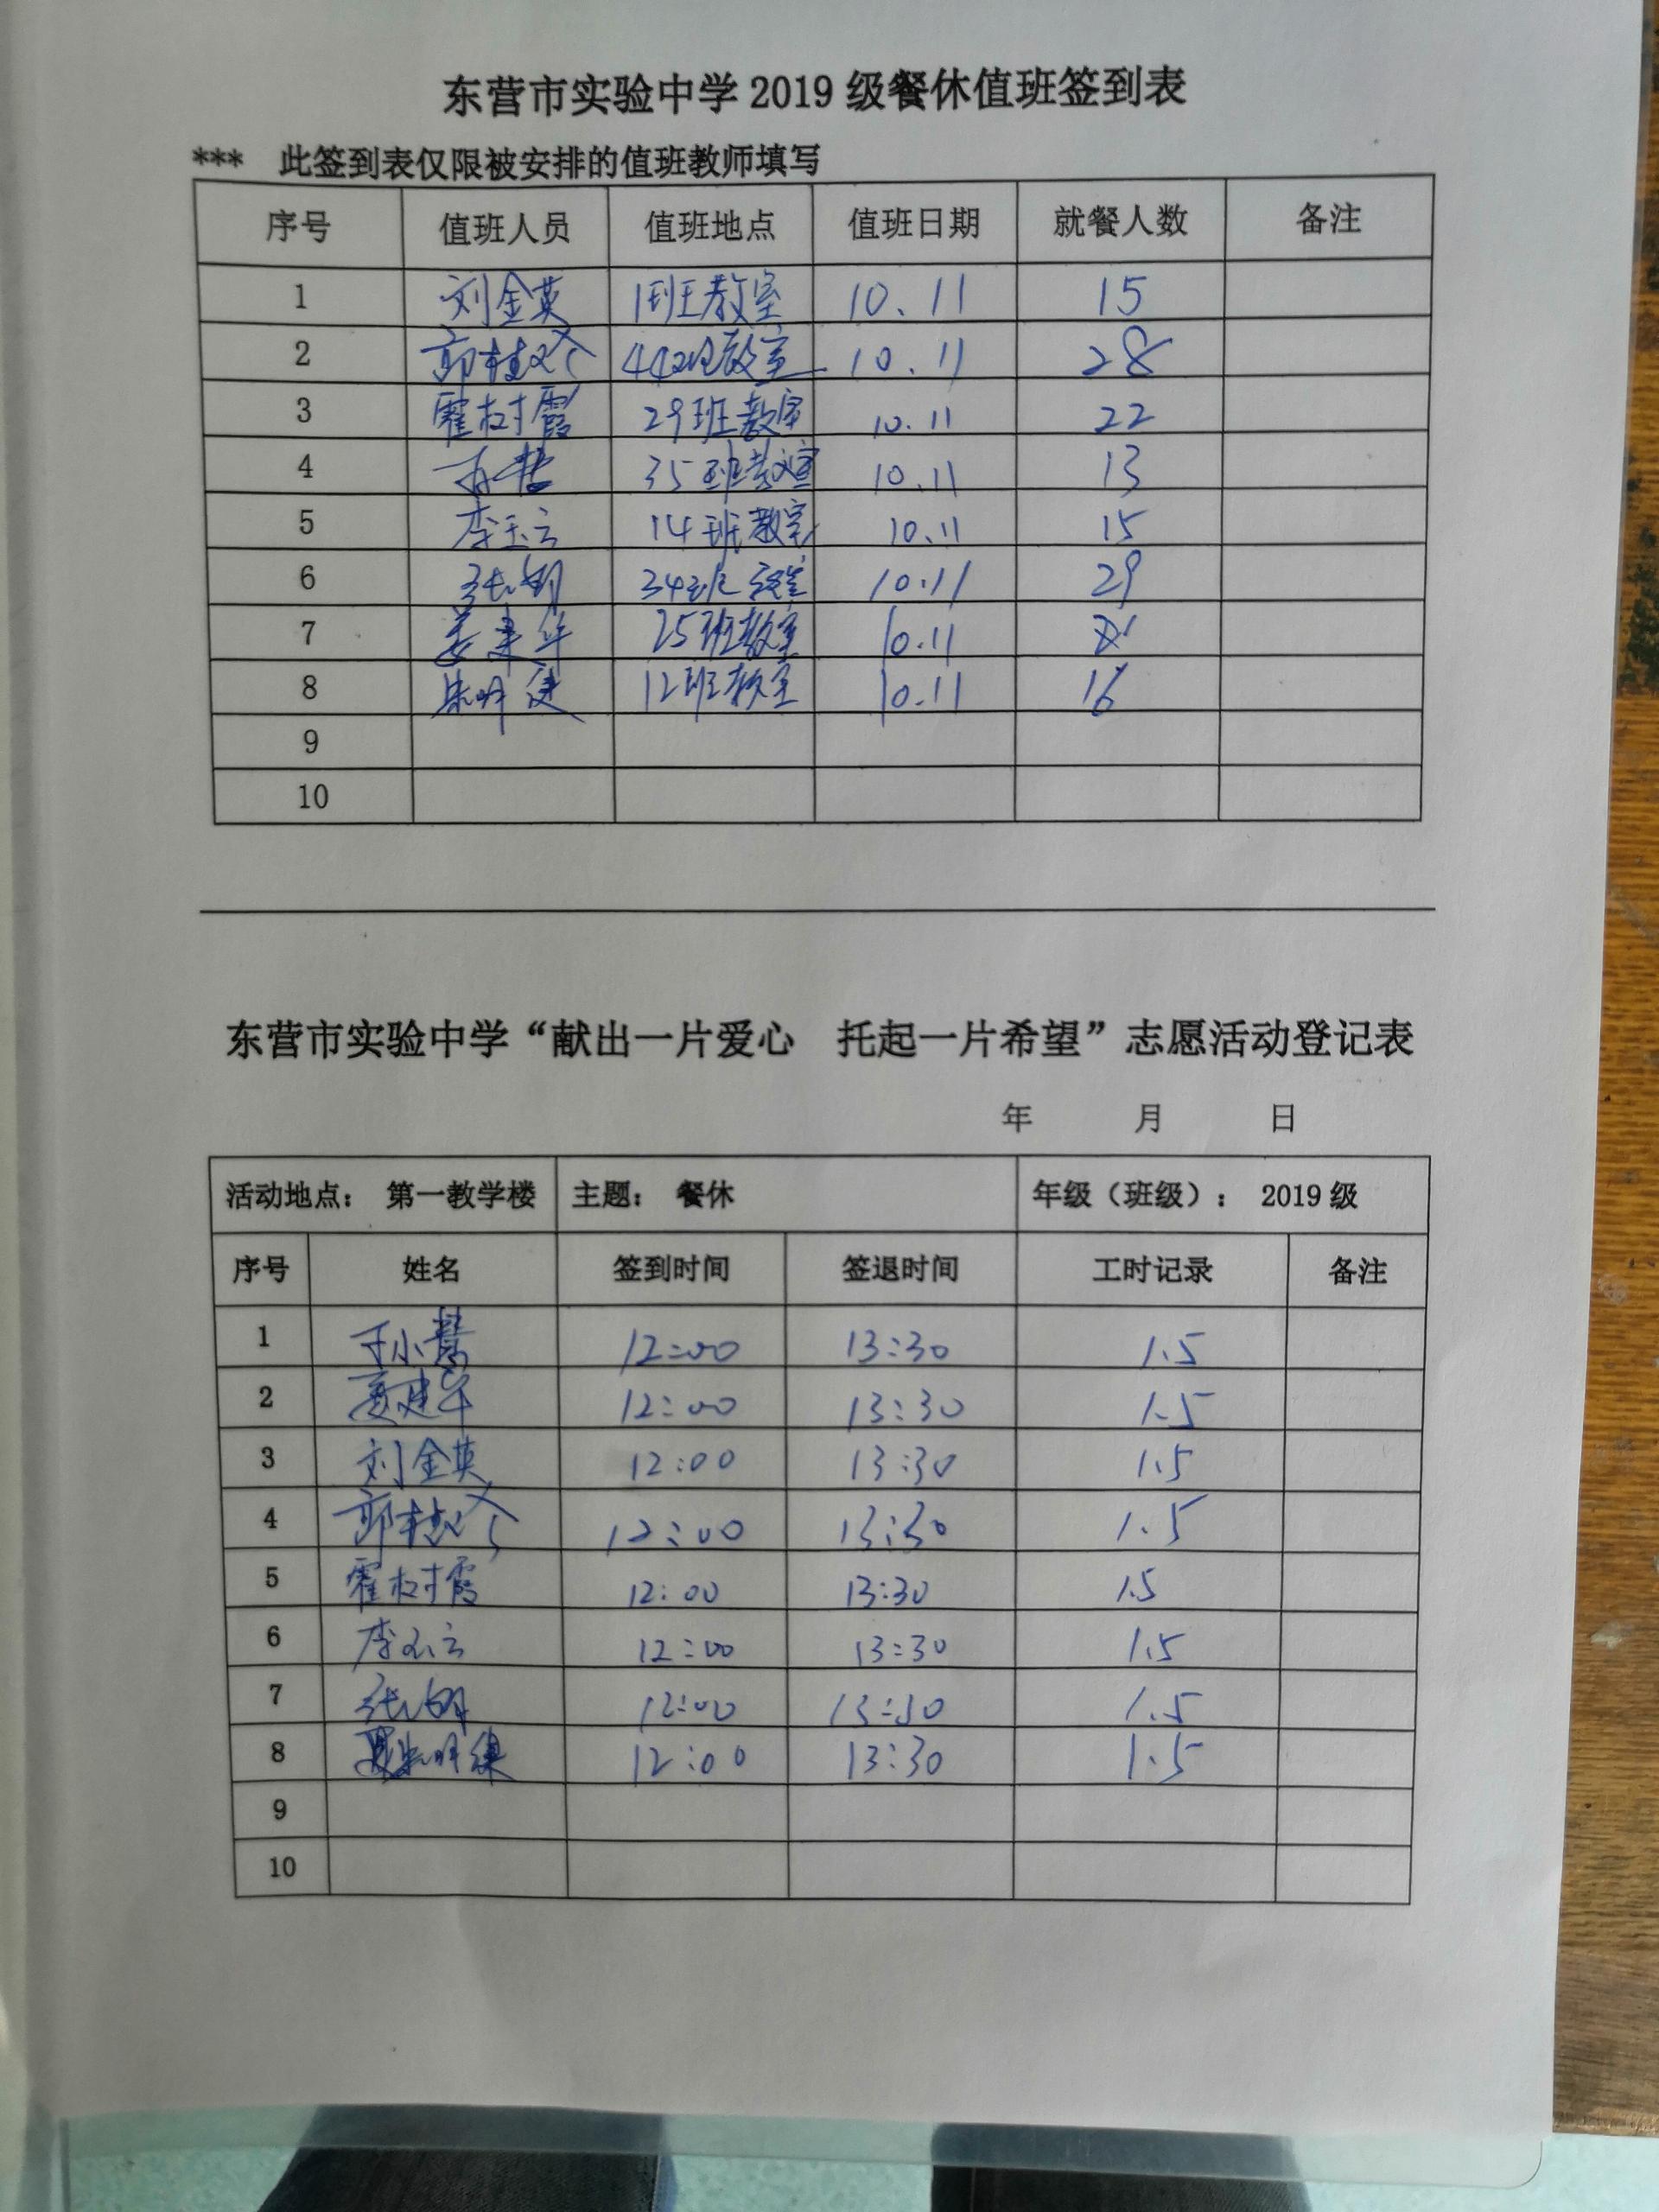 东营市实验中学 2019 级餐休值班签到表
*** 此签到表仅限被安排的值班教师填写
序号 值班人员 值班地点 值班日期 就餐人数 备注
1 刘金英 1班教室 10.11 15
2 10.11 28
3 霍树霞 29班教室 10.11 22
4 35班教室 10.11 13
5 李玉云 14班教室 10.11 15
6 34班教室 10.11 29
7 姜建华 25班教室 10.11
8 12班教室 10.11 16
9
10
东营市实验中学“献出一片爱心 托起一片希望”志愿活动登记表
年 月 日
活动地点： 第一教学楼 主题： 餐休 年级（班级）： 2019 级
序号 姓名 签到时间 签退时间 工时记录 备注
1 12:00 13:30 1.5
2 姜建华 12:00 13:30 1.5
3 刘金英 12:00 13:30 1.5
4 12:00 13:30 1.5
5 霍树霞 12:00 13:30 1.5
6 李玉云 12:00 13:30 1.5
7 12:00 13:30 1.5
8 12:00 13:30 1.5
9
10